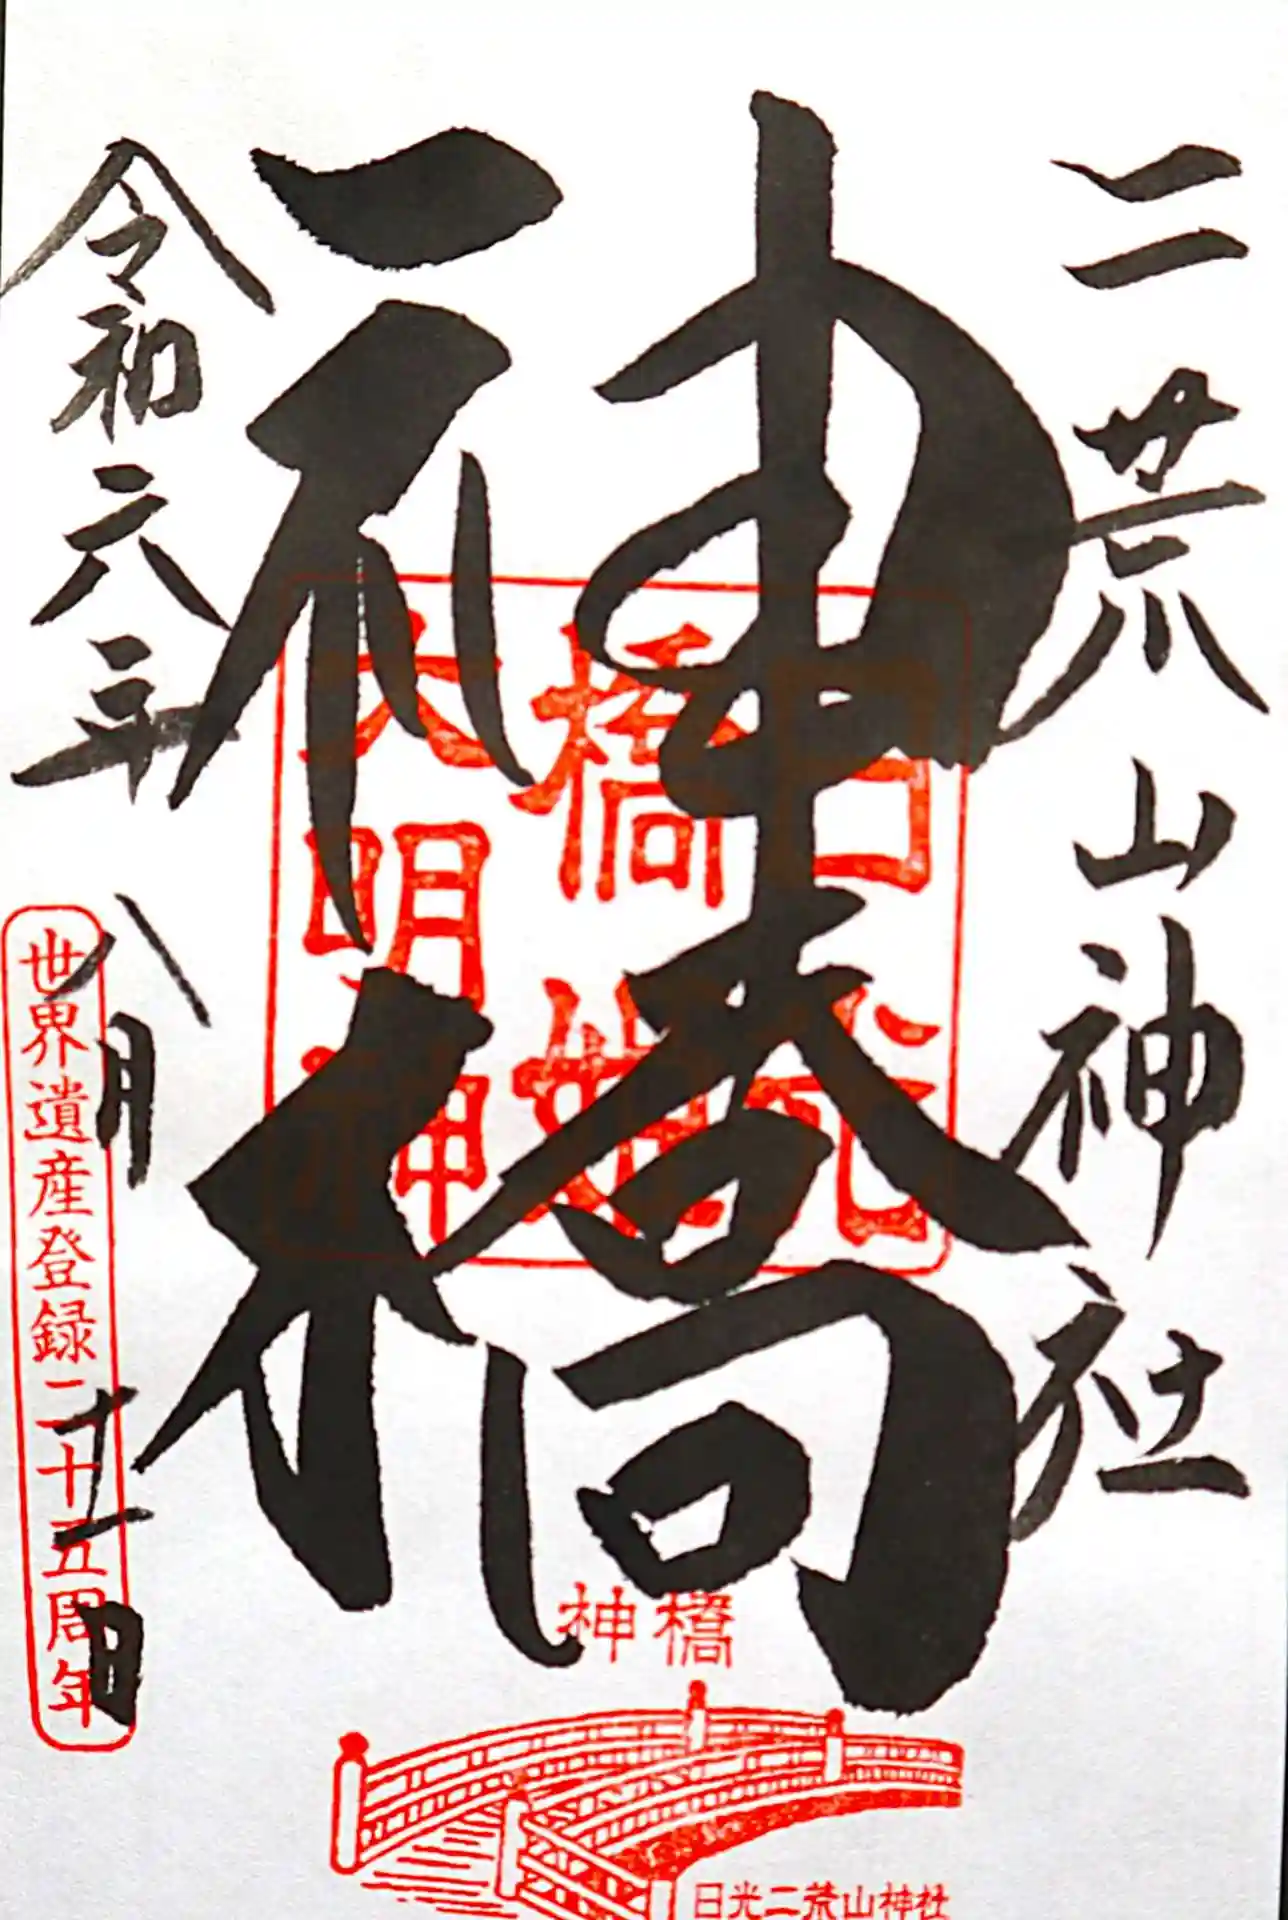 二荒山神社
神橋
日光
橋姫
大明神
令和六年
八月十一日
世界遺産登録二十五周年
神橋
日光二荒山神社